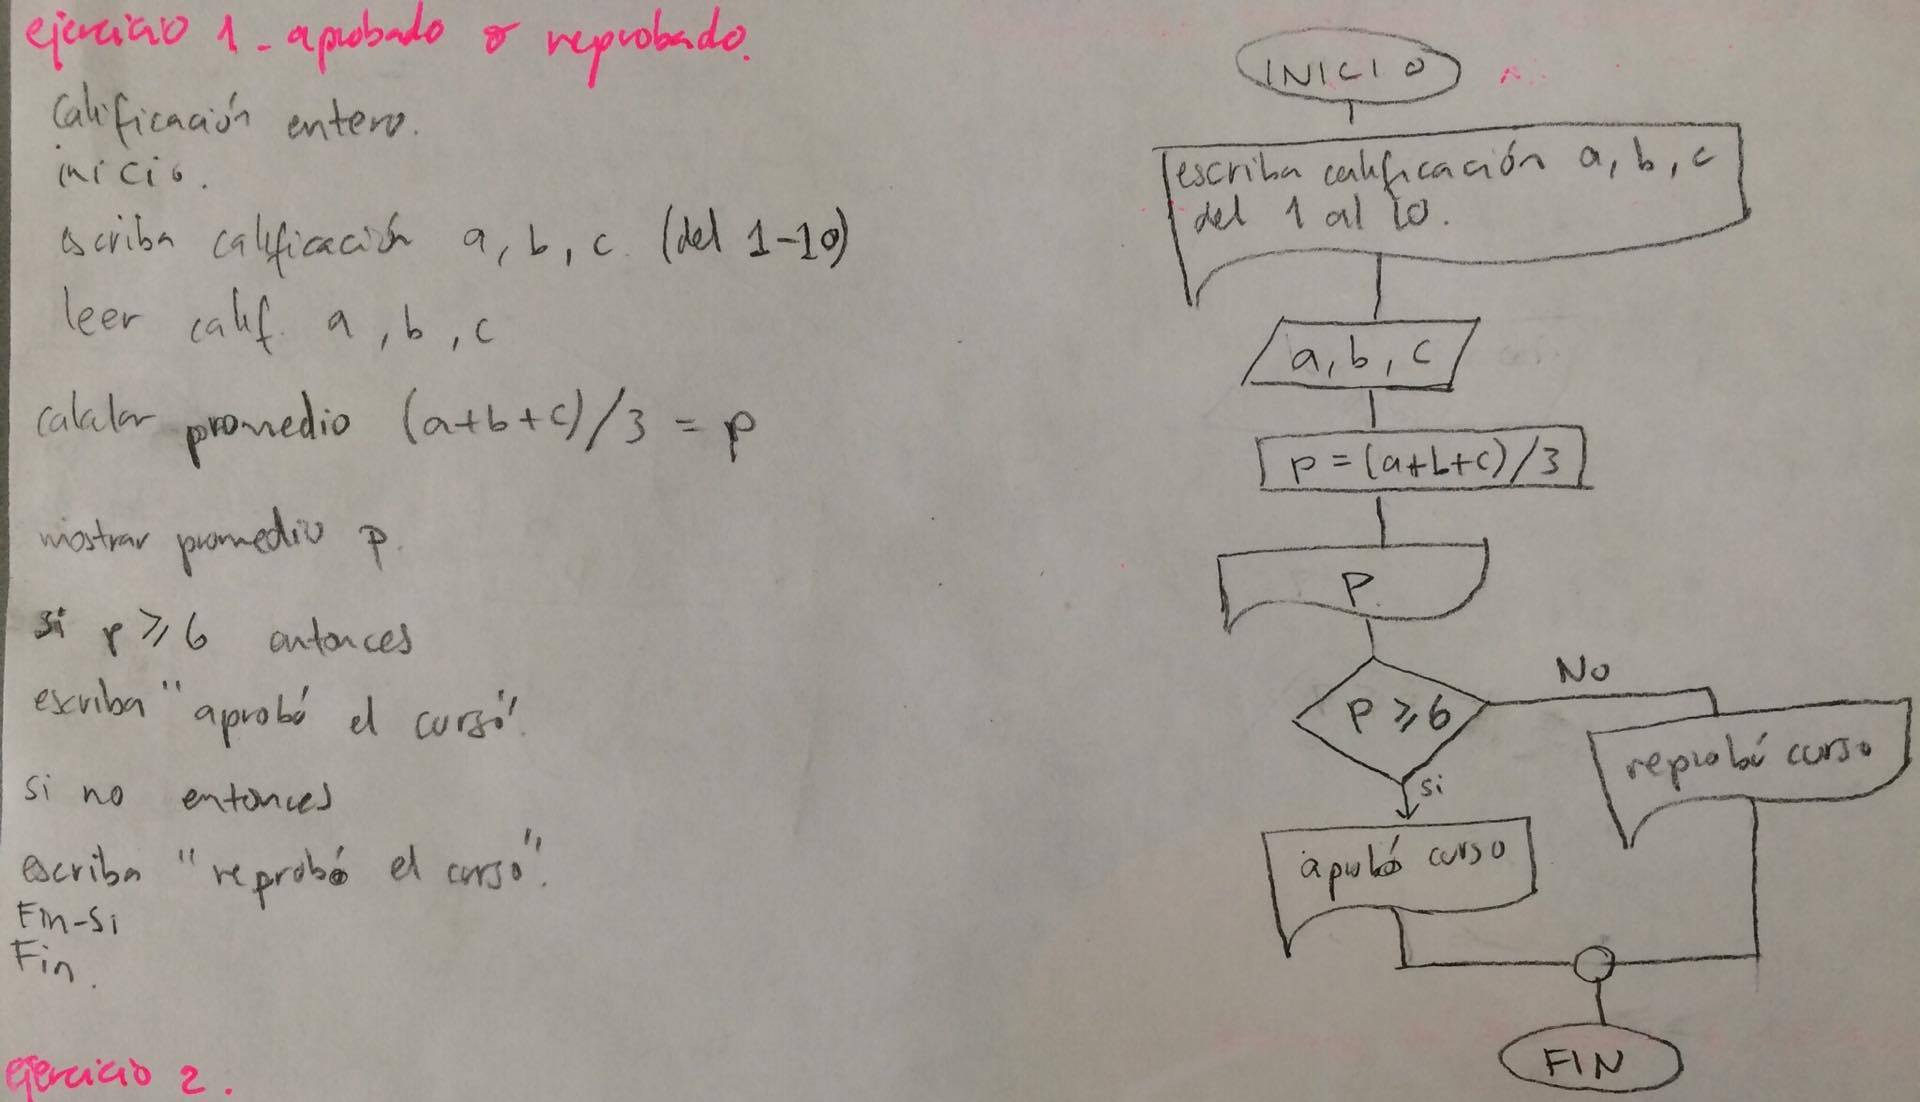 ejercicio 1 - aprobado o reprobado.
Calificación entero.
inicio.
escriba calificación a, b, c. (del 1-10)
leer calif. a, b, c
calcular promedio (a+b+c)/3 = p
mostrar promedio p.
si p ≥ 6 entonces
escriba "aprobó el curso".
si no entonces
escriba "reprobó el curso".
Fin-Si
Fin.
ejercicio 2.
INICIO
escriba calificación a, b, c
del 1 al 10.
a, b, c
p = (a+b+c)/3
P.
P ≥ 6
No
reprobó curso
si
aprobó curso
FIN